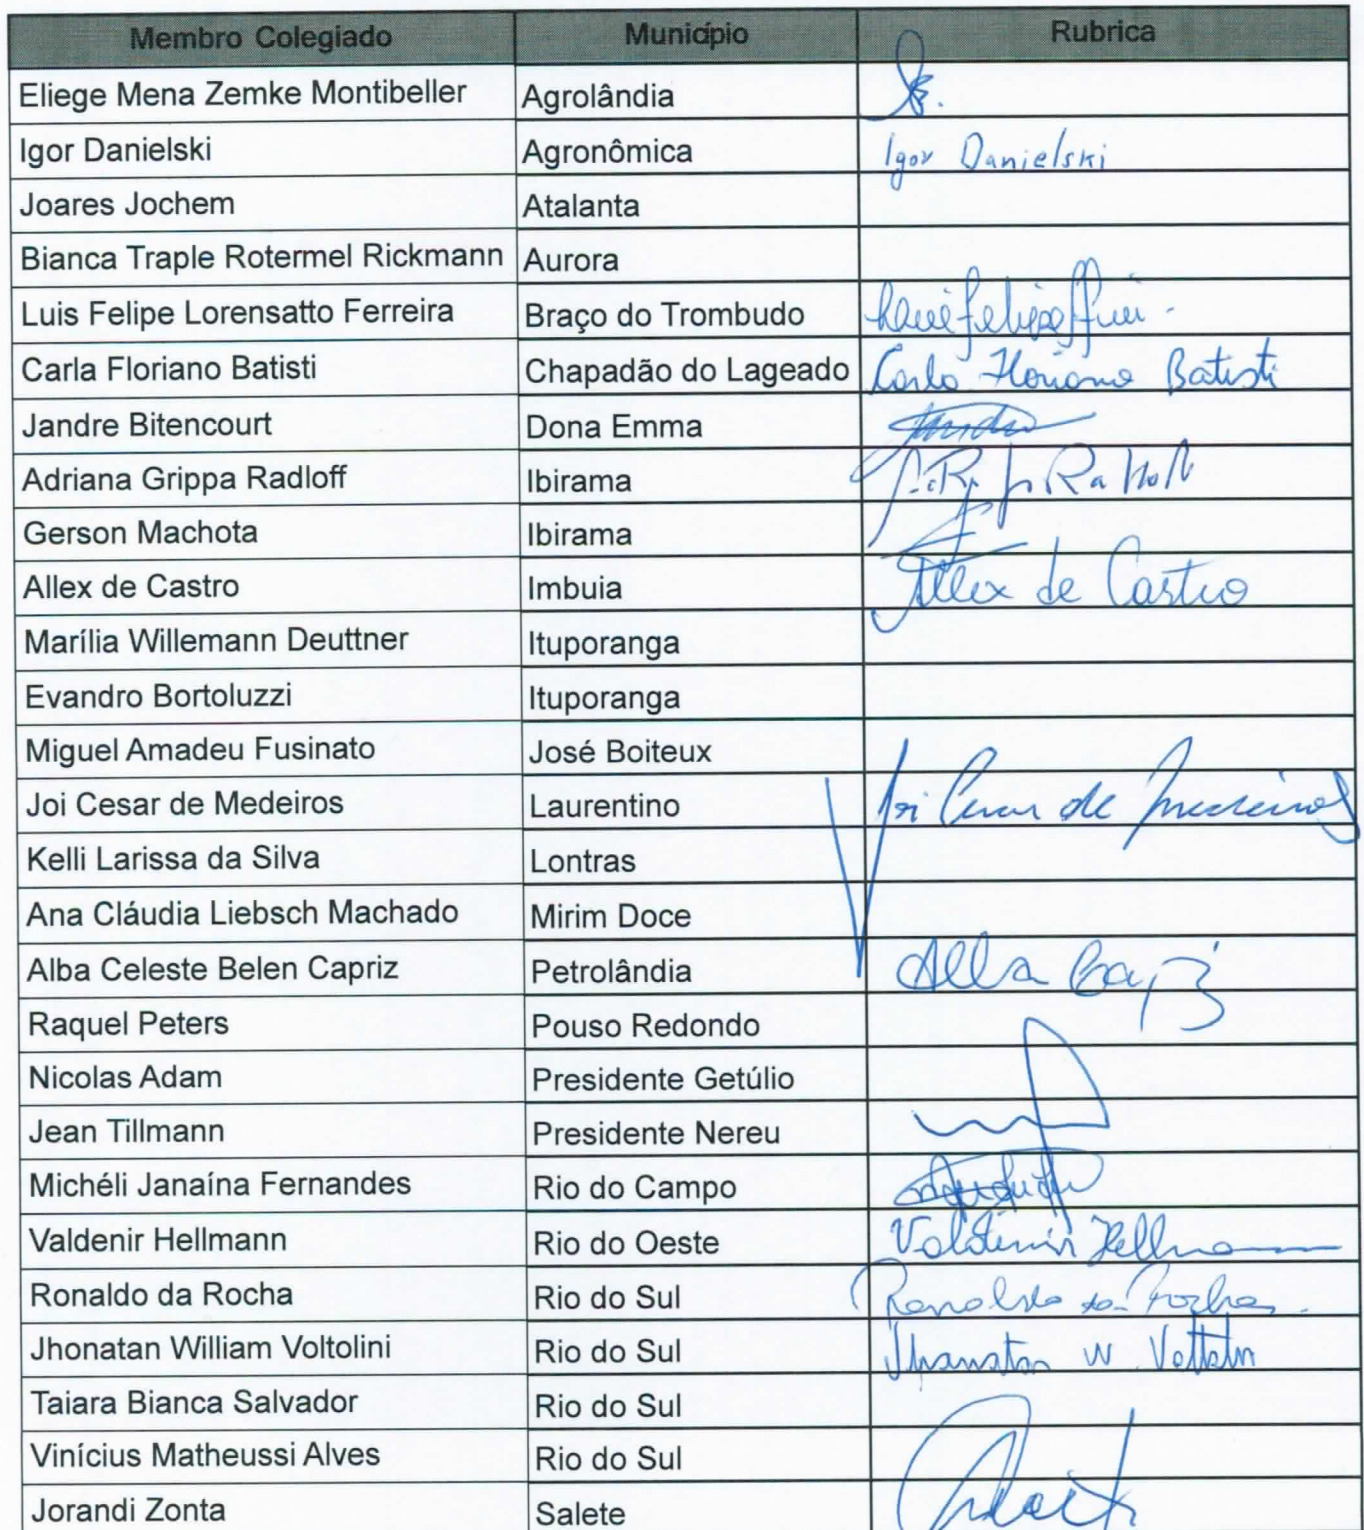 Membro Colegiado Município Rubrica
Eliege Mena Zemke Montibeller Agrolândia
Igor Danielski Agronômica Igor Danielski
Joares Jochem Atalanta
Bianca Traple Rotermel Rickmann Aurora
Luis Felipe Lorensatto Ferreira Braço do Trombudo
Carla Floriano Batisti Chapadão do Lageado Carla Floriano Batisti
Jandre Bitencourt Dona Emma
Adriana Grippa Radloff Ibirama
Gerson Machota Ibirama
Allex de Castro Imbuia Allex de Castro
Marília Willemann Deuttner Ituporanga
Evandro Bortoluzzi Ituporanga
Miguel Amadeu Fusinato José Boiteux
Joi Cesar de Medeiros Laurentino Joi Cesar de Medeiros
Kelli Larissa da Silva Lontras
Ana Cláudia Liebsch Machado Mirim Doce
Alba Celeste Belen Capriz Petrolândia Alba
Raquel Peters Pouso Redondo
Nicolas Adam Presidente Getúlio
Jean Tillmann Presidente Nereu
Michéli Janaína Fernandes Rio do Campo
Valdenir Hellmann Rio do Oeste Valdenir Hellmann
Ronaldo da Rocha Rio do Sul Ronaldo da Rocha
Jhonatan William Voltolini Rio do Sul Jhonatan W
Taiara Bianca Salvador Rio do Sul
Vinícius Matheussi Alves Rio do Sul
Jorandi Zonta Salete